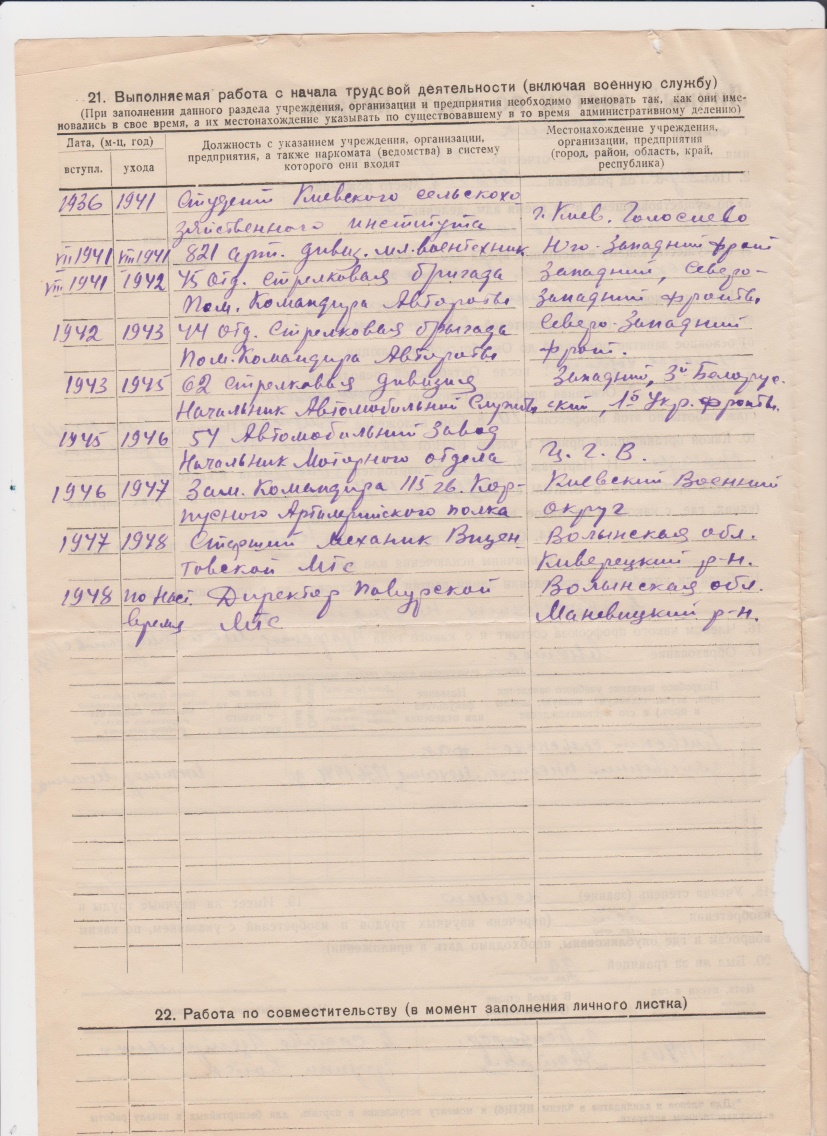 21. Выполняемая работа с начала трудовой деятельности (включая военную службу)
(При заполнении данного раздела учреждения, организации и предприятия необходимо именовать так, как они име-
новались в свое время, а их местонахождение указывать по существовавшему в то время административному делению)
Дата, (м-ц, год)
вступл. ухода
Должность с указанием учреждения, организации,
предприятия, а также наркомата (ведомства) в систему
которого они входят
Местонахождение учреждения,
организации, предприятия
(город, район, область, край,
республика)
1936 1941 Студент Киевского сельскохо
зяйственного института г. Киев. Голосиево
VII 1941 VIII 1941 821 арт. дивиз. мл. воентехник Юго-Западний фронт
VIII 1941 1942 75 отд. стрелковая бригада Западний, Северо-
Пом. Командира Автороты Западний фронты
1942 1943 44 отд. стрелковая брыгада Северо-Западний
Пом. Командира Автороты фронт.
1943 1945 62 стрелковая дивизия Западний, 3й Белорус-
Начальник Автомобильний Службы ский, 1й Укр. фронты.
1945 1946 54 Автомобильний Завод
Начальник Моторного отдела Ц. Г. В.
1946 1947 Зам. Командира 115 гв. Кор- Киевский Военний
пусного Артилерийского полка округ
1947 1948 Старший механик Вицен- Волынская обл.
товской МТС Киверецкий р-н.
1948 по наст. Директор Повурской Волынская обл.
время МТС Маневицкий р-н.
22. Работа по совместительству (в момент заполнения личного листка)